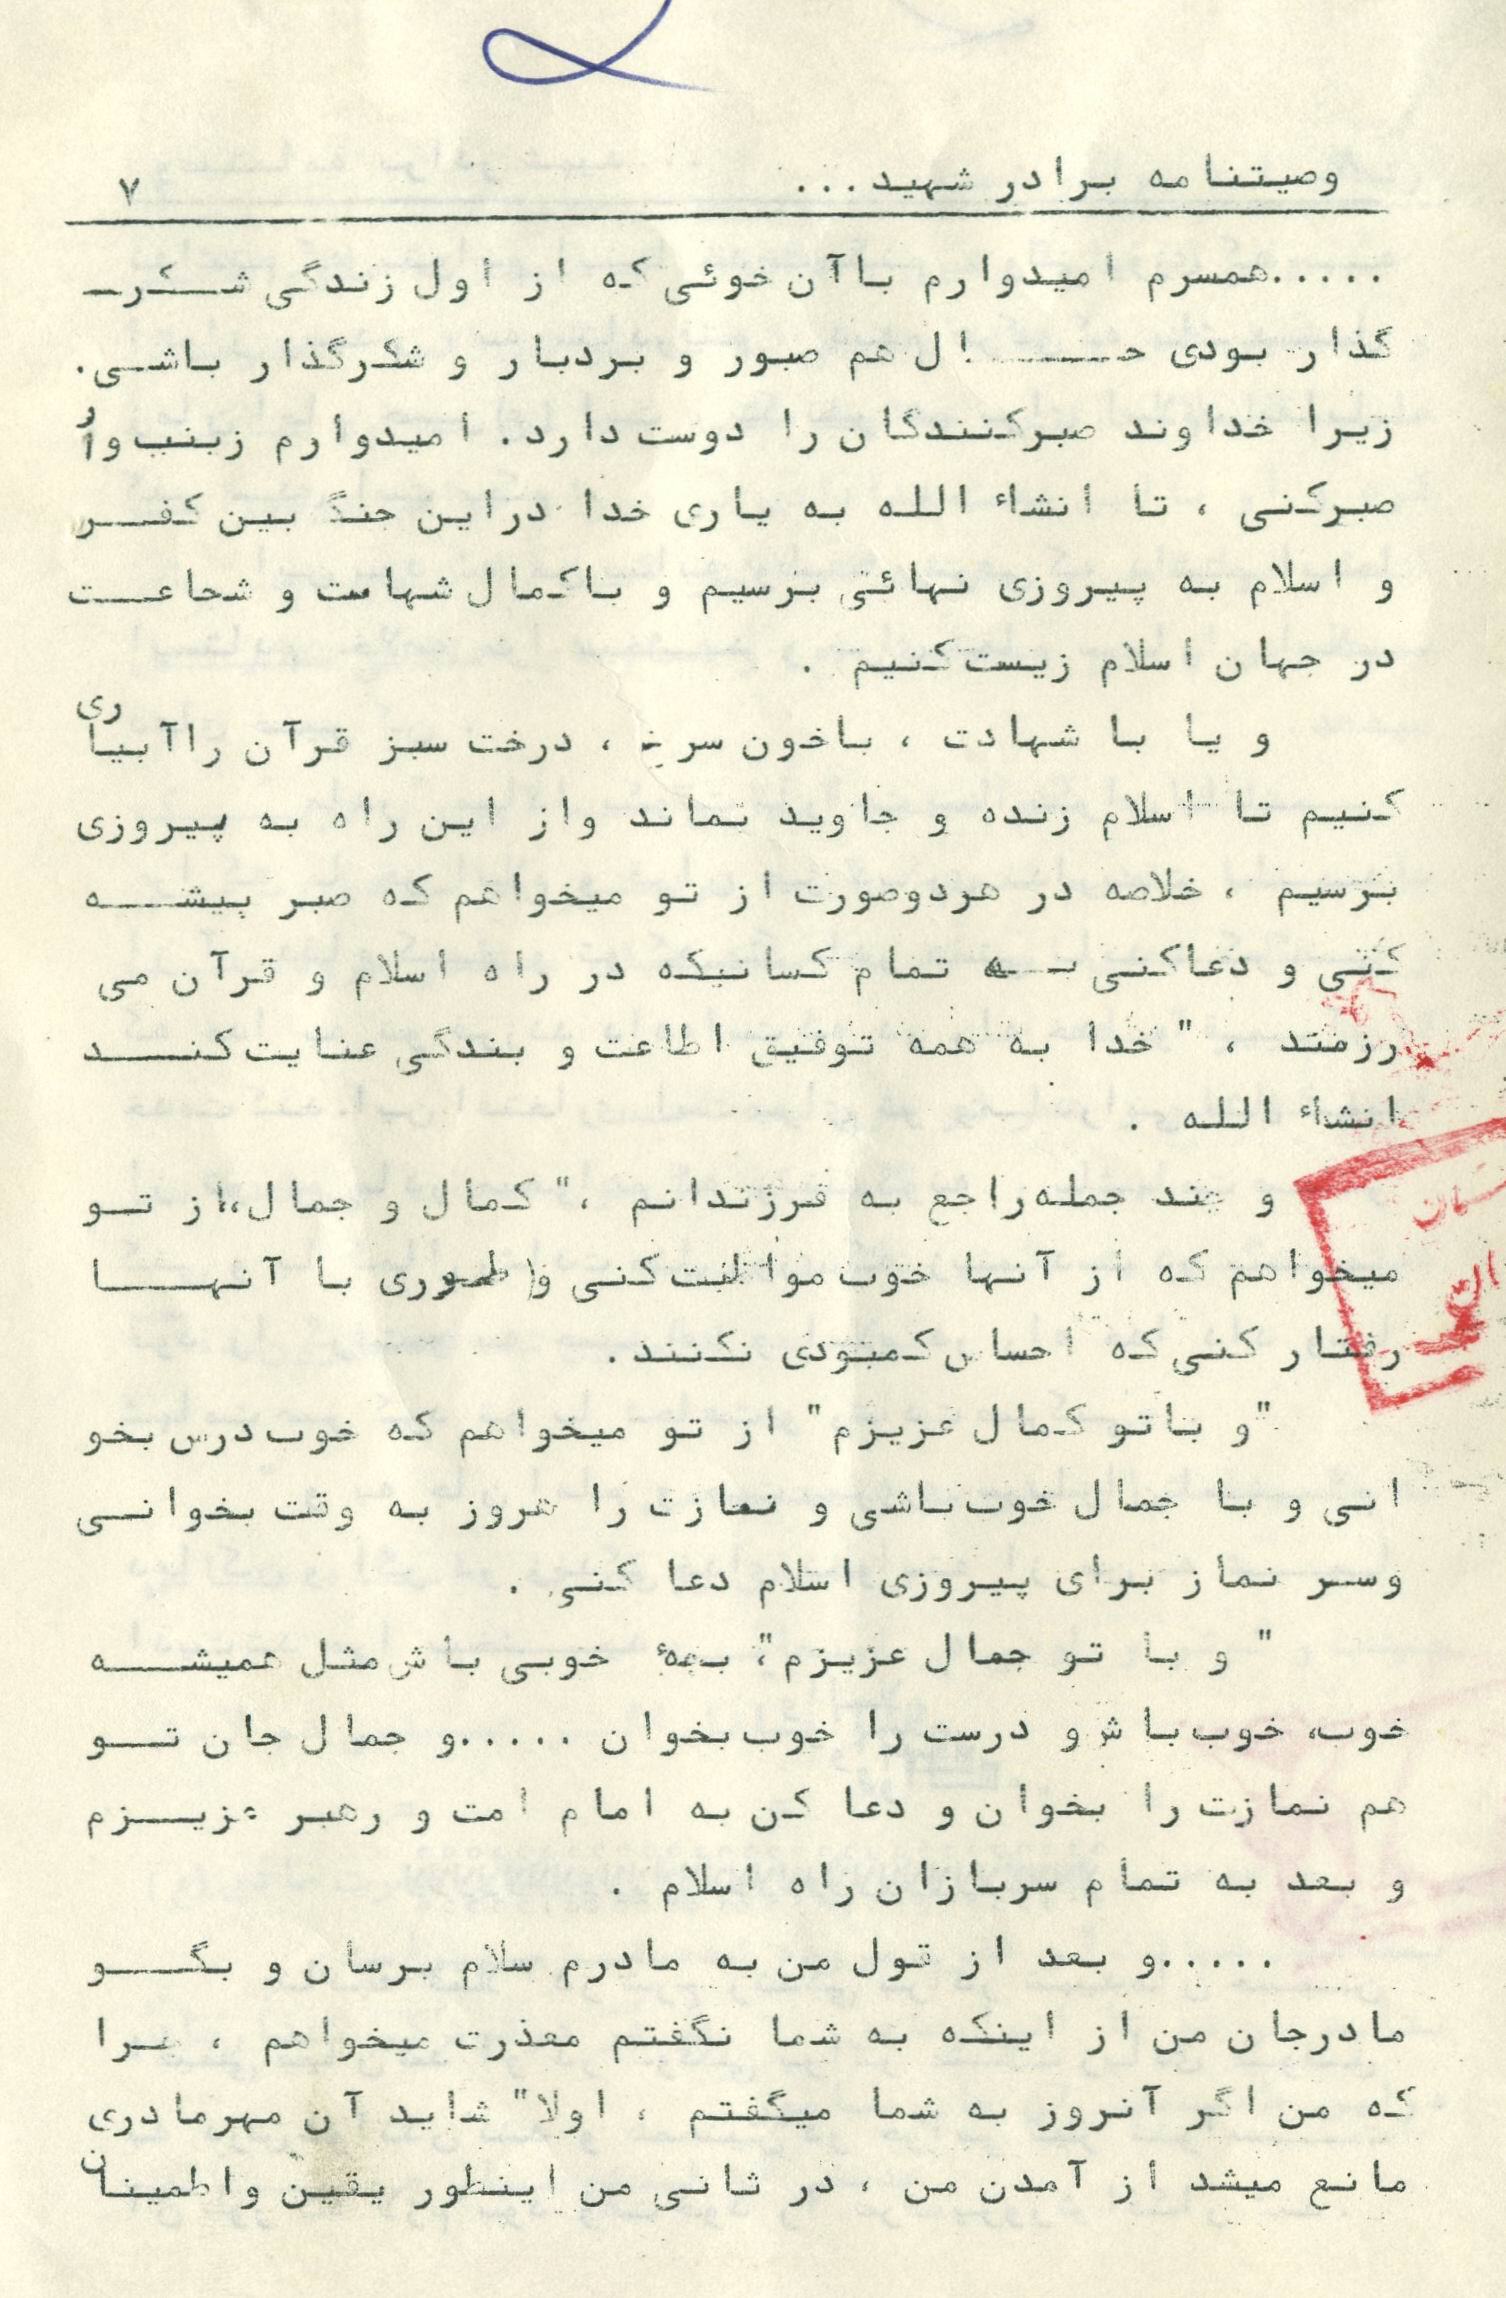 وصیتنامه برادر شهید... ۷
.....همسرم امیدوارم باآن خوئی که از اول زندگی شکر
گذار بودی حال هم صبور و بردبار و شکرگذار باشی.
زیرا خداوند صبرکنندگان را دوست دارد. امیدوارم زینب وار
صبرکنی ، تا انشاء الله به یاری خدا دراین جنگ بین کفر
و اسلام به پیروزی نهائی برسیم و باکمال شهامت و شجاعت
در جهان اسلام زیست کنیم .
و یا با شهادت ، باخون سرخ ، درخت سبز قرآن راآبیاری
کنیم تا اسلام زنده و جاوید بماند واز این راه به پیروزی
برسیم ، خلاصه در هردوصورت از تو میخواهم که صبر پیشه
کنی و دعاکنی به تمام کسانیکه در راه اسلام و قرآن می
رزمند ، " خدا به همه توفیق اطاعت و بندگی عنایت کند
انشاء الله .
و چند جمله راجع به فرزندانم ، " کمال و جمال،، از تو
میخواهم که از آنها خوب مواظبت کنی و طوری با آنها
رفتار کنی که احساس کمبودی نکنند.
"و باتو کمال عزیزم" از تو میخواهم که خوب درس بخو
انی و با جمال خوب باشی و نمازت را هروز به وقت بخوانی
وسر نماز برای پیروزی اسلام دعا کنی .
" و با تو جمال عزیزم"، بچهٔ خوبی باش مثل همیشه
خوب، خوب باش و درست را خوب بخوان .....و جمال جان تو
هم نمازت را بخوان و دعا کن به امام امت و رهبر عزیزم
و بعد به تمام سربازان راه اسلام .
.....و بعد از قول من به مادرم سلام برسان و بگو
مادرجان من از اینکه به شما نگفتم معذرت میخواهم ، چرا
که من اگر آنروز به شما میگفتم ، اولا" شاید آن مهرمادری
مانع میشد از آمدن من ، در ثانی من اینطور یقین واطمینان